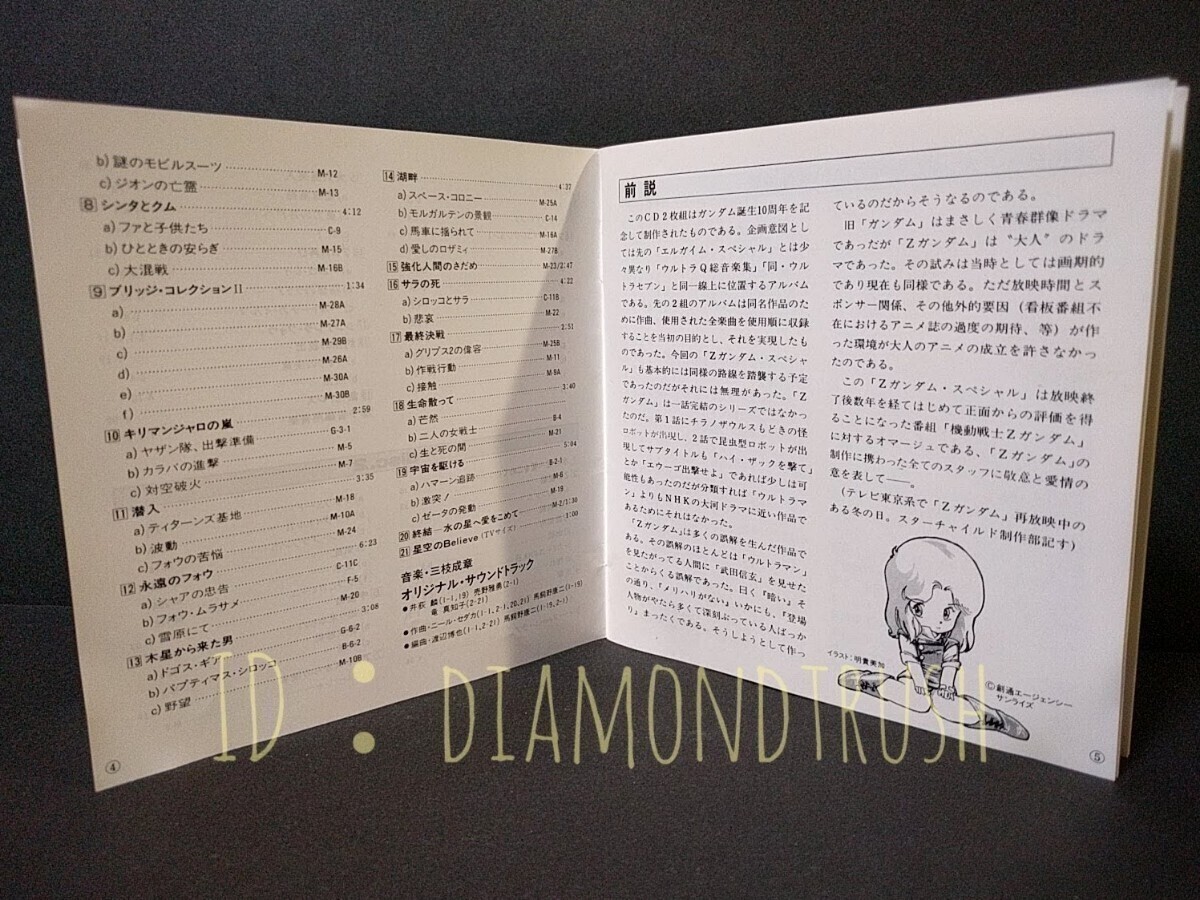 b)謎のモビルスーツ……M-12
c)ジオンの亡霊……M-13
8 シンタとクム……4:12
a)ファと子供たち……C-9
b)ひとときの安らぎ……M-15
c)大混戦……M-16B
9 ブリッジ・コレクションII……1:34
a)……M-28A
b)……M-27A
c)……M-29B
d)……M-26A
e)……M-30A
f)……M-30B
10 キリマンジャロの嵐……2:59
a)ヤザン隊、出撃準備……G-3-1
b)カラバの進撃……M-5
c)対空破火……M-7
11 潜入……3:35
a)ティターンズ基地……M-18
b)波動……M-10A
c)フォウの苦悩……M-24
12 永遠のフォウ……6:23
a)シャアの忠告……C-11C
b)フォウ・ムラサメ……F-5
c)雪原にて……M-20
13 木星から来た男……3:08
a)ドゴス・ギア……G-6-2
b)パプティマス・シロッコ……B-6-2
c)野望……M-10B
④
14 湖畔……4:37
a)スペース・コロニー……M-25A
b)モルガルテンの景観……C-14
c)馬車に揺られて……M-16A
d)愛しのロザミィ……M-27B
15 強化人間のさだめ……M-23/2:47
16 サラの死……4:22
a)シロッコとサラ……C-11B
b)悲哀……M-22
17 最終決戦……2:51
a)グリプス2の偉容……M-25B
b)作戦行動……M-11
c)接触……M-9A
18 生命散って……3:40
a)芒然……B-4
b)二人の女戦士……M-21
c)生と死の間
19 宇宙を駆ける……5:04
a)ハマーン追跡……B-2-1
b)激突!……M-6
c)ゼータの発動……M-19
20 終結—水の星へ愛をこめて……M-2/1:30
21 星空のBelieve(TVサイズ)……1:00
音楽・三枝成章
オリジナル・サウンドトラック
●井荻 麟(1-1,19)売野雅勇(2-1)
竜 真知子(2-21)
●作曲・ニール・セダカ(1-1,2-1,20,21)馬飼野康二(1-19)
●編曲・渡辺博也(1-1,2-21)馬飼野康二(1-19,2-1)
前説
このCD2枚組はガンダム誕生10周年を記
念して制作されたものである。企画意図とし
ては先の「エルガイム・スペシャル」とは少
々異なり「ウルトラQ総音楽集」「同・ウル
トラセブン」と同一線上に位置するアルバム
である。先の2組のアルバムは同名作品のた
めに作曲、使用された全楽曲を使用順に収録
することを当初の目的とし、それを実現したも
のであった。今回の「Zガンダム・スペシャ
ル」も基本的には同様の路線を踏襲する予定
であったのだがそれには無理があった。「Z
ガンダム」は一話完結のシリーズではなかっ
たのだ。第1話にチラノザウルスもどきの怪
ロボットが出現し、2話で昆虫型ロボットが出
現してサブタイトルも「ハイ・ザックを撃て」
とか「エウーゴ出撃せよ」であれば少しは可
能性もあったのだが分類すれば「ウルトラマ
ン」よりもNHKの大河ドラマに近い作品で
あるためにそれはなかった。
「Zガンダム」は多くの誤解を生んだ作品で
ある。その誤解のほとんどは「ウルトラマン」
を見たがってる人間に「武田信玄」を見せた
ことからくる誤解であった。曰く『暗い』そ
の通り、『メリハリがない』いかにも、『登場
人物がやたら多くて深刻ぶっている人ばっか
り』まったくである。そうしようとして作っ
ているのだからそうなるのである。
旧「ガンダム」はまさしく青春群像ドラマ
であったが「Zガンダム」は“大人”のドラ
マであった。その試みは当時としては画期的
であり現在も同様である。ただ放映時間とス
ポンサー関係、その他外的要因(看板番組不
在におけるアニメ誌の過度の期待、等)が作
った環境が大人のアニメの成立を許さなかっ
たのである。
この「Zガンダム・スペシャル」は放映終
了後数年を経てはじめて正面からの評価を得
ることになった番組「機動戦士Zガンダム」
に対するオマージュである、「Zガンダム」の
制作に携わった全てのスタッフに敬意と愛情の
意を表して——。
(テレビ東京系で「Zガンダム」再放映中の
ある冬の日。スターチャイルド制作部記す)
イラスト:明貴美加
©創通エージェンシー
サンライズ
⑤
ID : DIAMONDTRUSH